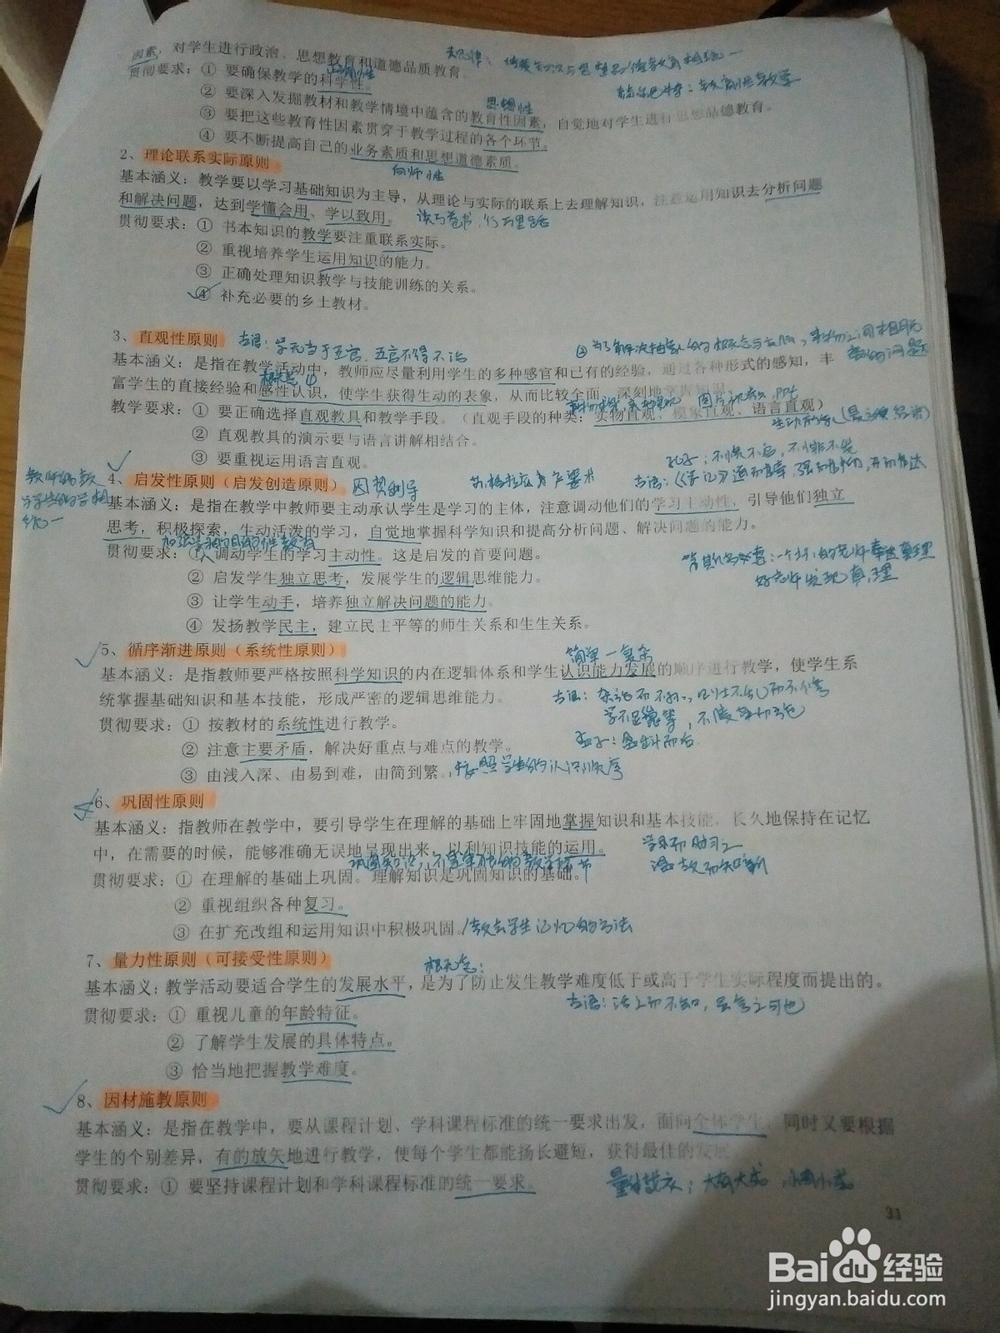 因素，对学生进行政治、思想教育和道德品质教育。
贯彻要求：① 要确保教学的科学性。
② 要深入发掘教材和教学情境中蕴含的教育性因素，
思想性
③ 要把这些教育性因素贯穿于教学过程的各个环节。自觉地对学生进行思想品德教育。
④ 要不断提高自己的业务素质和思想道德素质。
向师性
2、理论联系实际原则
基本含义：教学要以学习基础知识为主导，从理论与实际的联系上去理解知识，注意运用知识去分析问题
和解决问题，达到学懂会用、学以致用。 读万卷书，行万里路
贯彻要求：① 书本知识的教学要注重联系实际。
② 重视培养学生运用知识的能力。
③ 正确处理知识教学与技能训练的关系。
④ 补充必要的乡土教材。
3、直观性原则
基本含义：是指在教学活动中，教师应尽量利用学生的多种感官和已有的经验，通过各种形式的感知，丰
富学生的直接经验和感性认识，使学生获得生动的表象，从而比较全面、深刻地掌握知识。
教学要求：① 要正确选择直观教具和教学手段。（直观手段的种类：实物直观、模象直观、语言直观）
② 直观教具的演示要与语言讲解相结合。
③ 要重视运用语言直观。
4、启发性原则（启发创造原则） 因势利导
孔子：不愤不启，不悱不发
基本含义：是指在教学中教师要主动承认学生是学习的主体，注意调动他们的学习主动性，引导他们独立
思考，积极探索，生动活泼的学习，自觉地掌握科学知识和提高分析问题、解决问题的能力。
贯彻要求：① 调动学生的学习主动性。这是启发的首要问题。
② 启发学生独立思考，发展学生的逻辑思维能力。
③ 让学生动手，培养独立解决问题的能力。
④ 发扬教学民主，建立民主平等的师生关系和生生关系。
5、循序渐进原则（系统性原则）
简单—复杂
基本含义：是指教师要严格按照科学知识的内在逻辑体系和学生认识能力发展的顺序进行教学，使学生系
统掌握基础知识和基本技能，形成严密的逻辑思维能力。
贯彻要求：① 按教材的系统性进行教学。
② 注意主要矛盾，解决好重点与难点的教学。
③ 由浅入深、由易到难，由简到繁。
6、巩固性原则
基本含义：指教师在教学中，要引导学生在理解的基础上牢固地掌握知识和基本技能，长久地保持在记忆
中，在需要的时候，能够准确无误地呈现出来，以利知识技能的运用。
学而时习之
贯彻要求：① 在理解的基础上巩固。理解知识是巩固知识的基础。
温故而知新
② 重视组织各种复习。
③ 在扩充改组和运用知识中积极巩固。
7、量力性原则（可接受性原则）
基本含义：教学活动要适合学生的发展水平，是为了防止发生教学难度低于或高于学生实际程度而提出的。
贯彻要求：① 重视儿童的年龄特征。
② 了解学生发展的具体特点。
③ 恰当地把握教学难度。
8、因材施教原则
基本含义：是指在教学中，要从课程计划、学科课程标准的统一要求出发，面向全体学生，同时又要根据
学生的个别差异，有的放矢地进行教学，使每个学生都能扬长避短，获得最佳的发展
贯彻要求：① 要坚持课程计划和学科课程标准的统一要求。
31
Baidu经验
jingyan.baidu.com